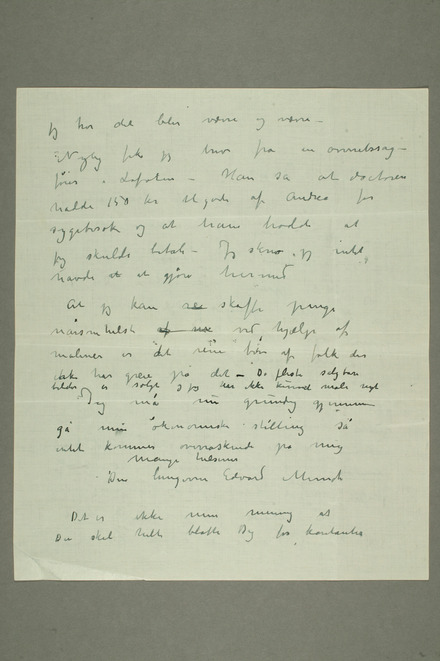 jeg tror det blir værre og værre –
Nylig fik jeg brev fra en overretssag-
fører i – Han sa at doctoren
havde 150 kr tilgode af Andrea for
sygebesøk og at han trodde at
jeg skulde betale – Jeg skrev jeg intet
havde at gjøre hermed
At jeg kan skaffe penge
nårsomhelst ved hjælp af
malerier er det rene af folk der
ikke har greie på det – De fleste
billeder er solgt og jeg har ikke kunnet male nyt
Jeg må nu grundig gjennem
gå min økonomiske stilling så
intet kommer overraskende på mig
Mange hilsener
Din hengivne Edvard Munch
Det er ikke min mening at
Du skal helt blotte Dig for kontanter